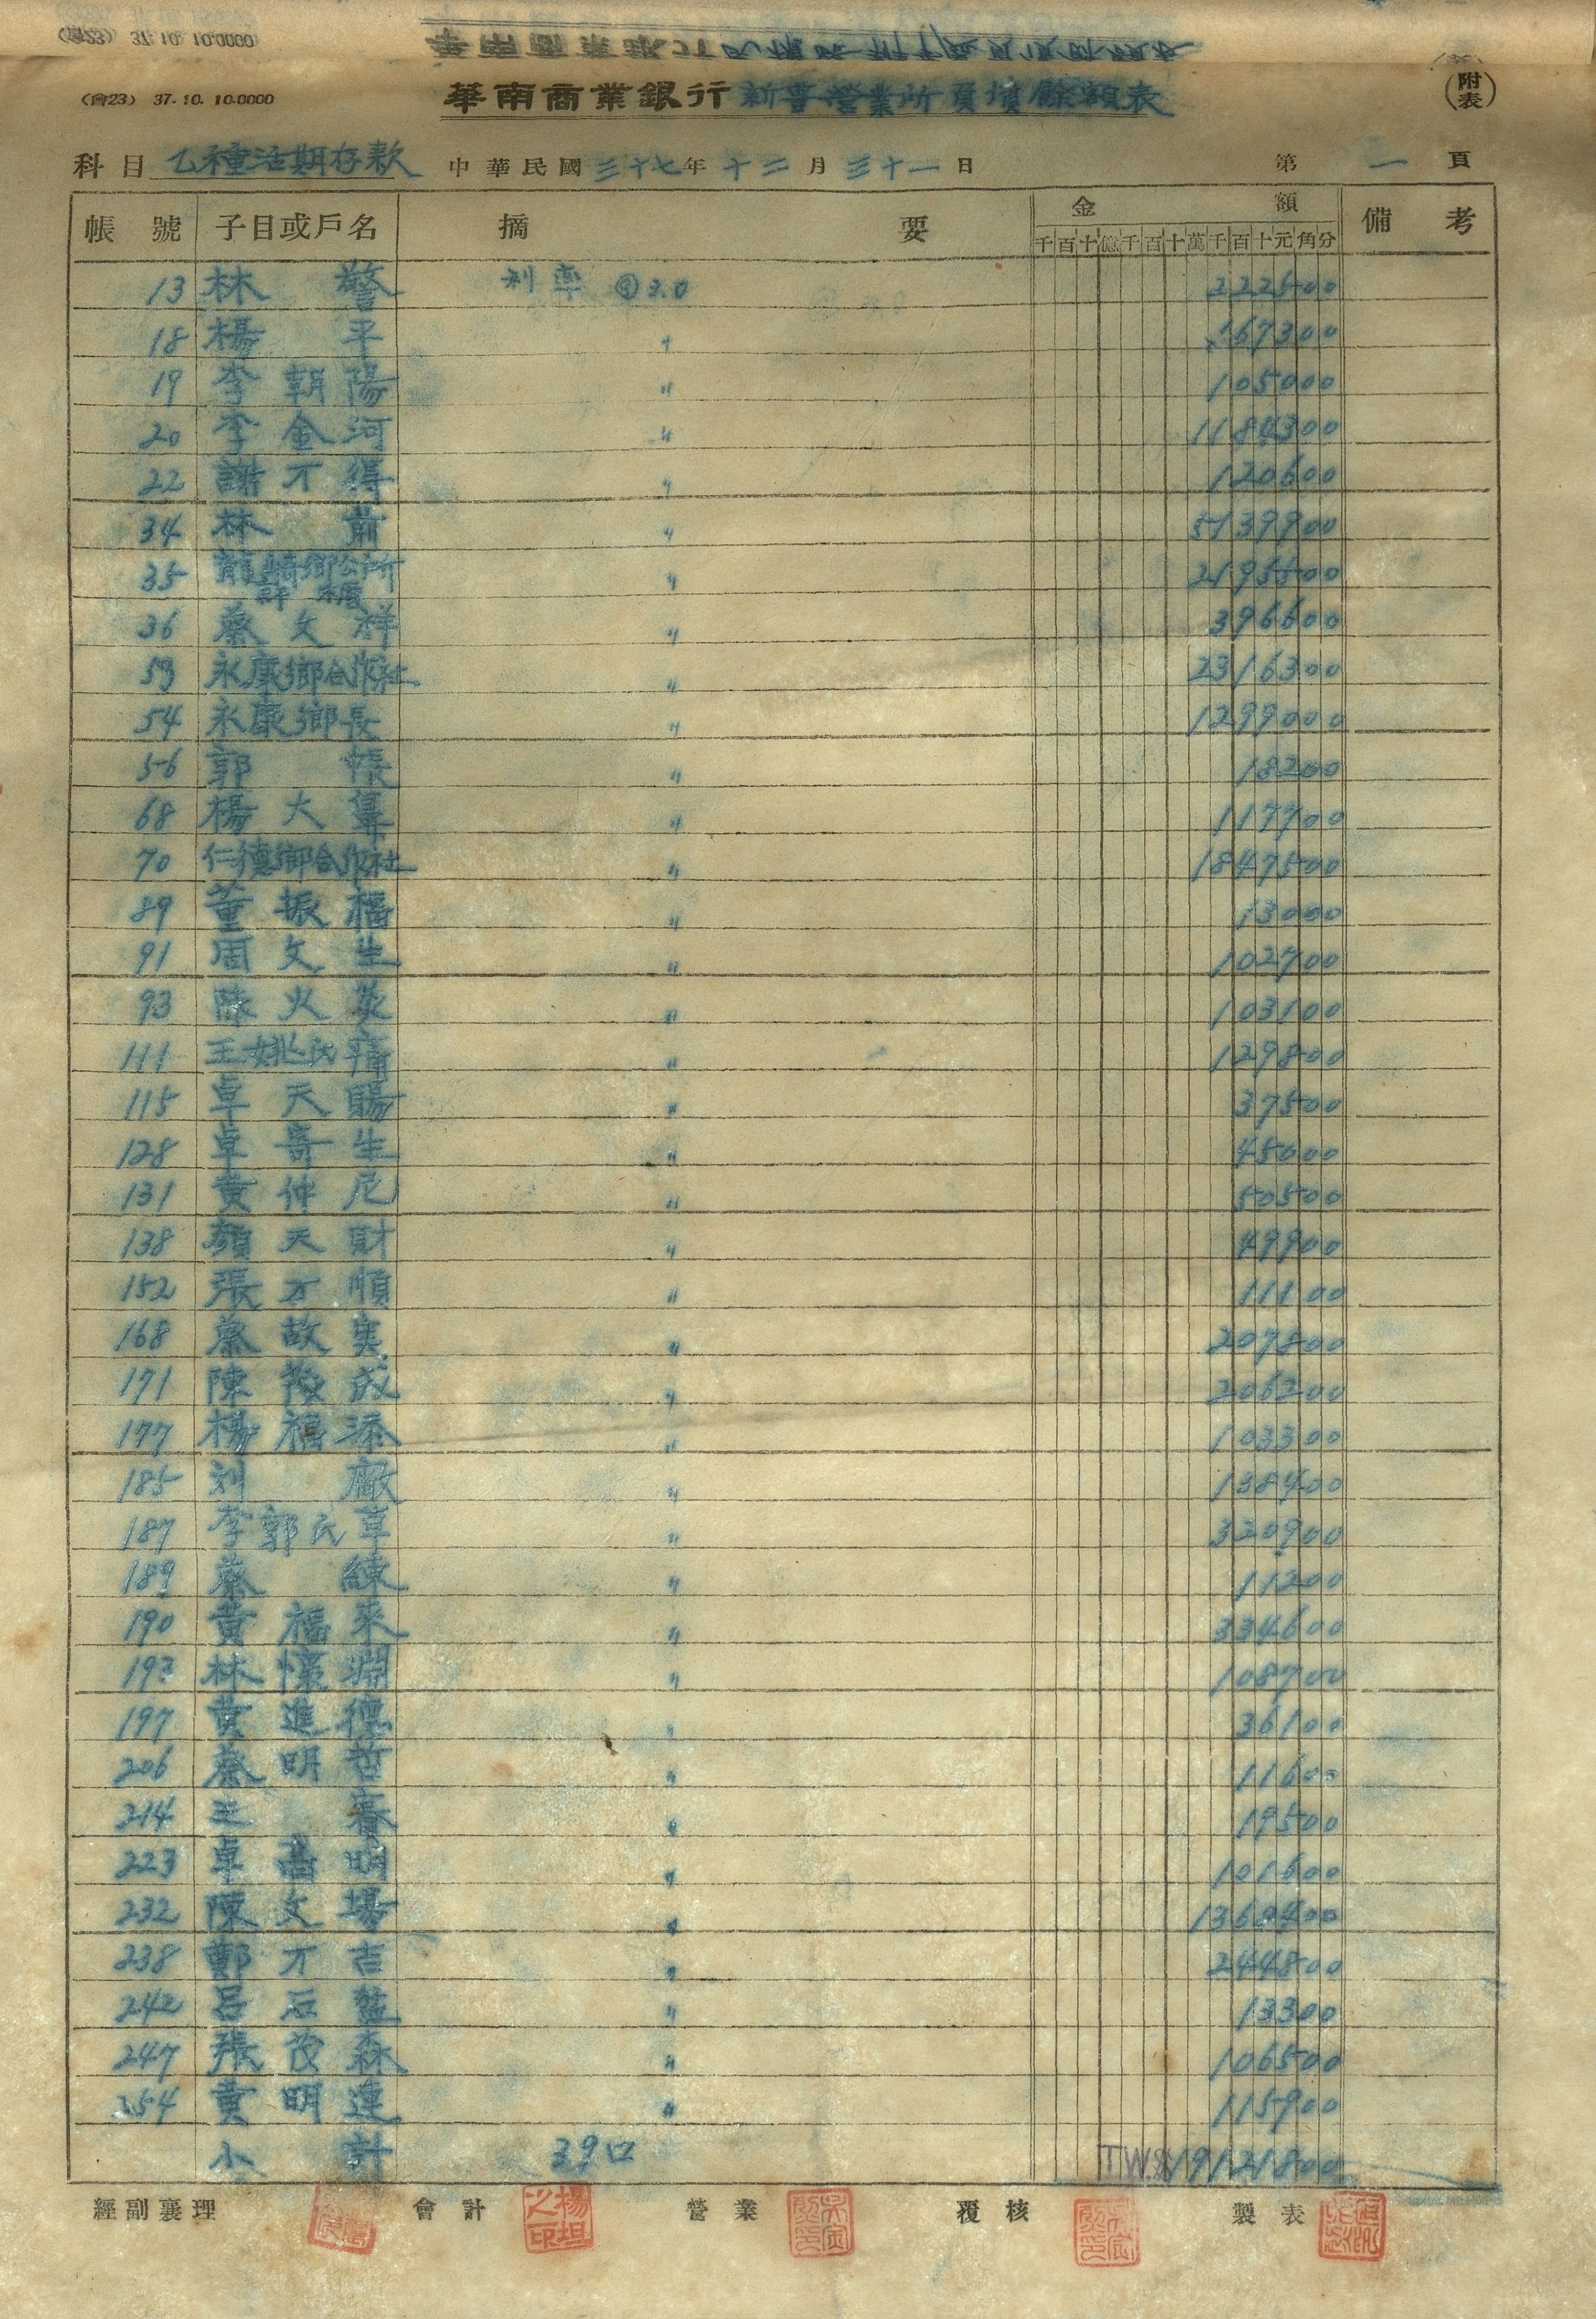 (會23) 37.10.10.0000
華南商業銀行新豐營業所負債餘額表
(附表)
科目 乙種活期存款 中華民國三十七年十二月三十一日 第一頁
帳號 子目或戶名 摘要 金額 備考
千百十億千百十萬千百十元角分
13 林警 利率 3.0 222500
18 楊平 〃 167300
19 李朝陽 〃 105000
20 李金河 〃 1184300
22 謝才得 〃 120600
34 林前 〃 5139900
35 龍崎鄉公所 〃 2195500
36 蔡文祥 〃 396600
53 永康鄉合作社 〃 2316300
54 永康鄉長 〃 1299000
56 郭帳 〃 18200
68 楊大 〃 117700
70 仁德鄉合作社 〃 1847500
89 董振福 〃 13000
91 周文生 〃 102700
93 陳火炎 〃 103100
111 王姚氏 〃 129800
115 卓天賜 〃 37500
128 卓寄生 〃 45000
131 黃仲尼 〃 50500
138 顏天財 〃 49900
152 張才順 〃 11100
168 蔡故 〃 207800
171 陳成 〃 206200
177 楊福添 〃 103300
185 刘廠 〃 138400
187 李郭氏草 〃 320900
189 蔡練 〃 11200
190 黃福來 〃 334600
193 林懷淵 〃 108700
197 黃進德 〃 36100
206 蔡明哲 〃 11600
214 王 〃 19500
223 卓高明 〃 101600
232 陳文場 〃 1369400
238 鄭才吉 〃 244800
242 呂石 〃 13300
247 張茂森 〃 106500
254 黃明連 〃 115900
小計 39口 TW.$19121800
經副襄理 會計 楊坦之印 營業 覆核 製表